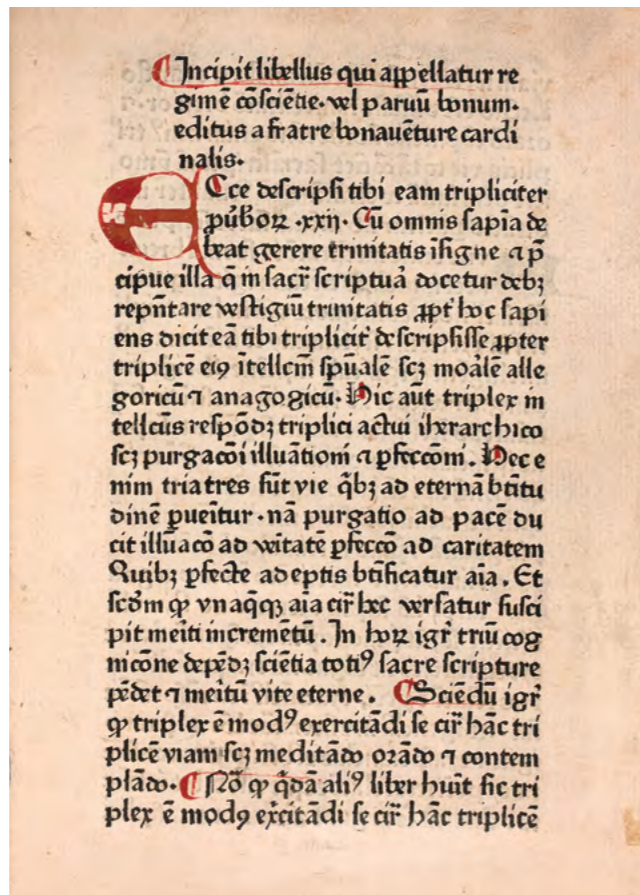 ¶ Incipit libellus qui appellatur re
gimē cōsciētie. vel paruū bonum.
editus a fratre bonauēture cardi
nalis.
Ecce descripsi tibi eam tripliciter
puͥborꝝ .xxij. Cū omnis sapīa de
beat gerere trinitatis īsigne ⁊ p̄
cipue illa q̄ in sacr̄ scriptuā docetur debꝫ
repn̄tare vestigiū trinitatis ꝓpt̄ hoc sapi
ens dicit eā tibi triplicit̄ descripsisse ꝓpter
triplicē eiꝰ ītellc̄m sp̄ualē scꝫ moālē alle
goricū ⁊ anagogicū. Hic aūt triplex in
tellcūs respōdꝫ triplici actui iherarchico
scꝫ purgacōi illuātioni ⁊ ꝑfeccōni. Hec e
nim tria tres sūt vie q̄bꝫ ad eternā btītu
dinē ꝑueītur. nā purgatio ad pacē du
cit illuacō ad veītatē ꝑfeccō ad caritatem
Quibꝫ ꝑfecte adeptis btīficatur aīa. Et
scd̄m ꝙ vnaq̄qꝫ aīa cir̄ hec versatur susci
pit meīti incremētū. In horꝝ igr̄ triū cog
nicōne depēdꝫ sciētia totiꝰ sacre scripture
pēdet ⁊ meītū vite eterne. ¶ Sciēdū igr̄
ꝙ triplex ē modꝰ exercitādi se cir̄ hāc tri
plicē viam scꝫ meditādo orādo ⁊ contem
plādo. ¶ Nō ꝙ q̄dā aliꝰ liber huīt sic tri
plex ē modꝰ ex̄citādi se cir̄ hāc triplicē